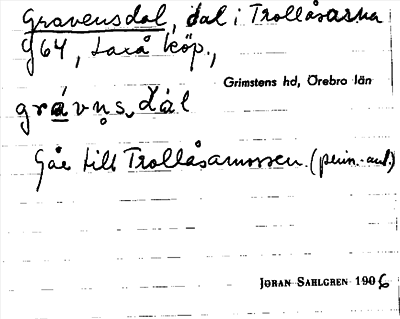 Gravensdal, dal i Trollåsarna
964, Laxå köp.,
Grimstens hd, Örebro län
grávn̥s dàl
Går till Trollåsamossen. (pein.-aut.)
JÖRAN SAHLGREN 1906